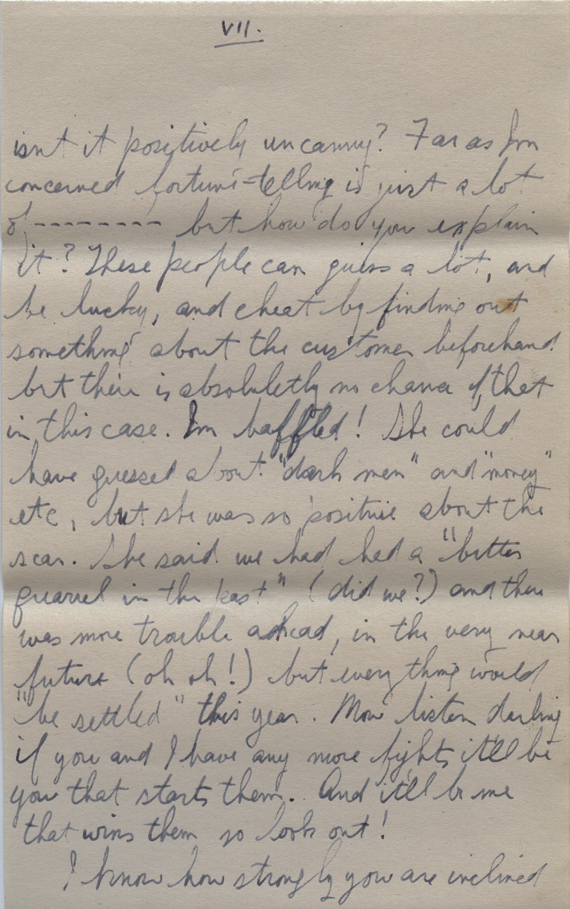 VII.
isnt it positively uncanny? Far as Im
concerned fortune-telling is just a lot
of -------- but how do you explain
it? These people can guess a lot, and
be lucky, and cheat by finding out
something about the customer beforehand
but there is absolutetly no chance of that
in this case. Im baffled! She could
have guessed about "dark men" and "money"
etc, but she was so positive about the
scar. She said we had had a "bitter
quarrel in the past" (did we?) and there
was more trouble ahead, in the very near
future (oh oh!) but everything would
"be settled" this year. Now listen darling
if you and I have any more fights it'll be
you that starts them. And it'll be me
that wins them so look out!
I know how strongly you are inclined